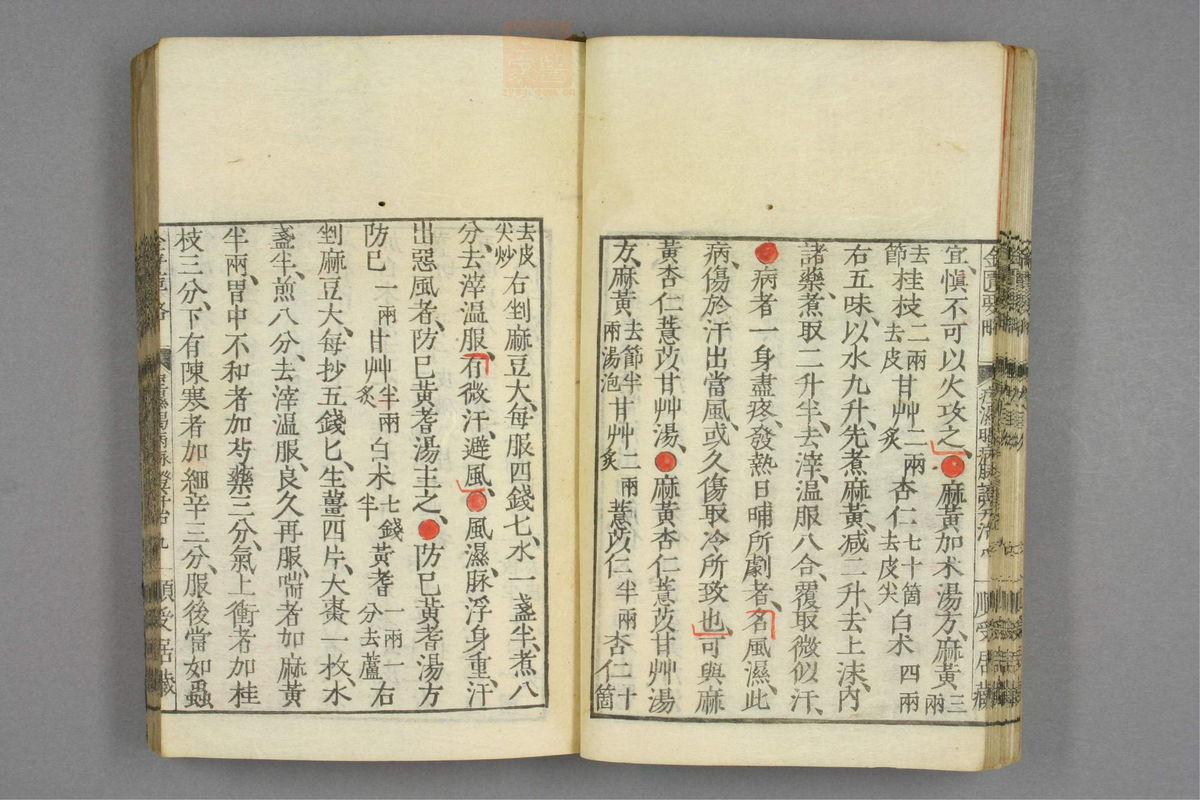 宜愼不可以火攻之●麻黃加朮湯方麻黃三兩
去節桂枝二兩去皮甘艸二兩炙杏仁七十箇去皮尖白朮四兩
右五味以水九升先煮麻黃减二升去上沫內
諸藥煮取二升半去滓溫服八合覆取微似汗
●病者一身盡疼發熱日晡所劇者名風濕此
病傷於汗出當風或久傷取冷所致也可與麻
黃杏仁薏苡甘艸湯●麻黃杏仁薏苡甘艸湯
方麻黃去節半兩湯泡甘艸二兩炙薏苡仁半兩杏仁十箇
去皮尖炒右剉麻豆大每服四錢匕水一盞半煮八
分去滓溫服有微汗避風●風濕脉浮身重汗
出惡風者防巳黃耆湯主之●防巳黃耆湯方
防巳一兩甘艸半兩炙白朮七錢半黃耆一兩一分去蘆右
剉麻豆大每抄五錢匕生薑四片大棗一枚水
盞半煎八分去滓溫服良久再服喘者加麻黃
半兩胃中不和者加芍藥三分氣上衝者加桂
枝三分下有陳寒者加細辛三分服後當如蟲